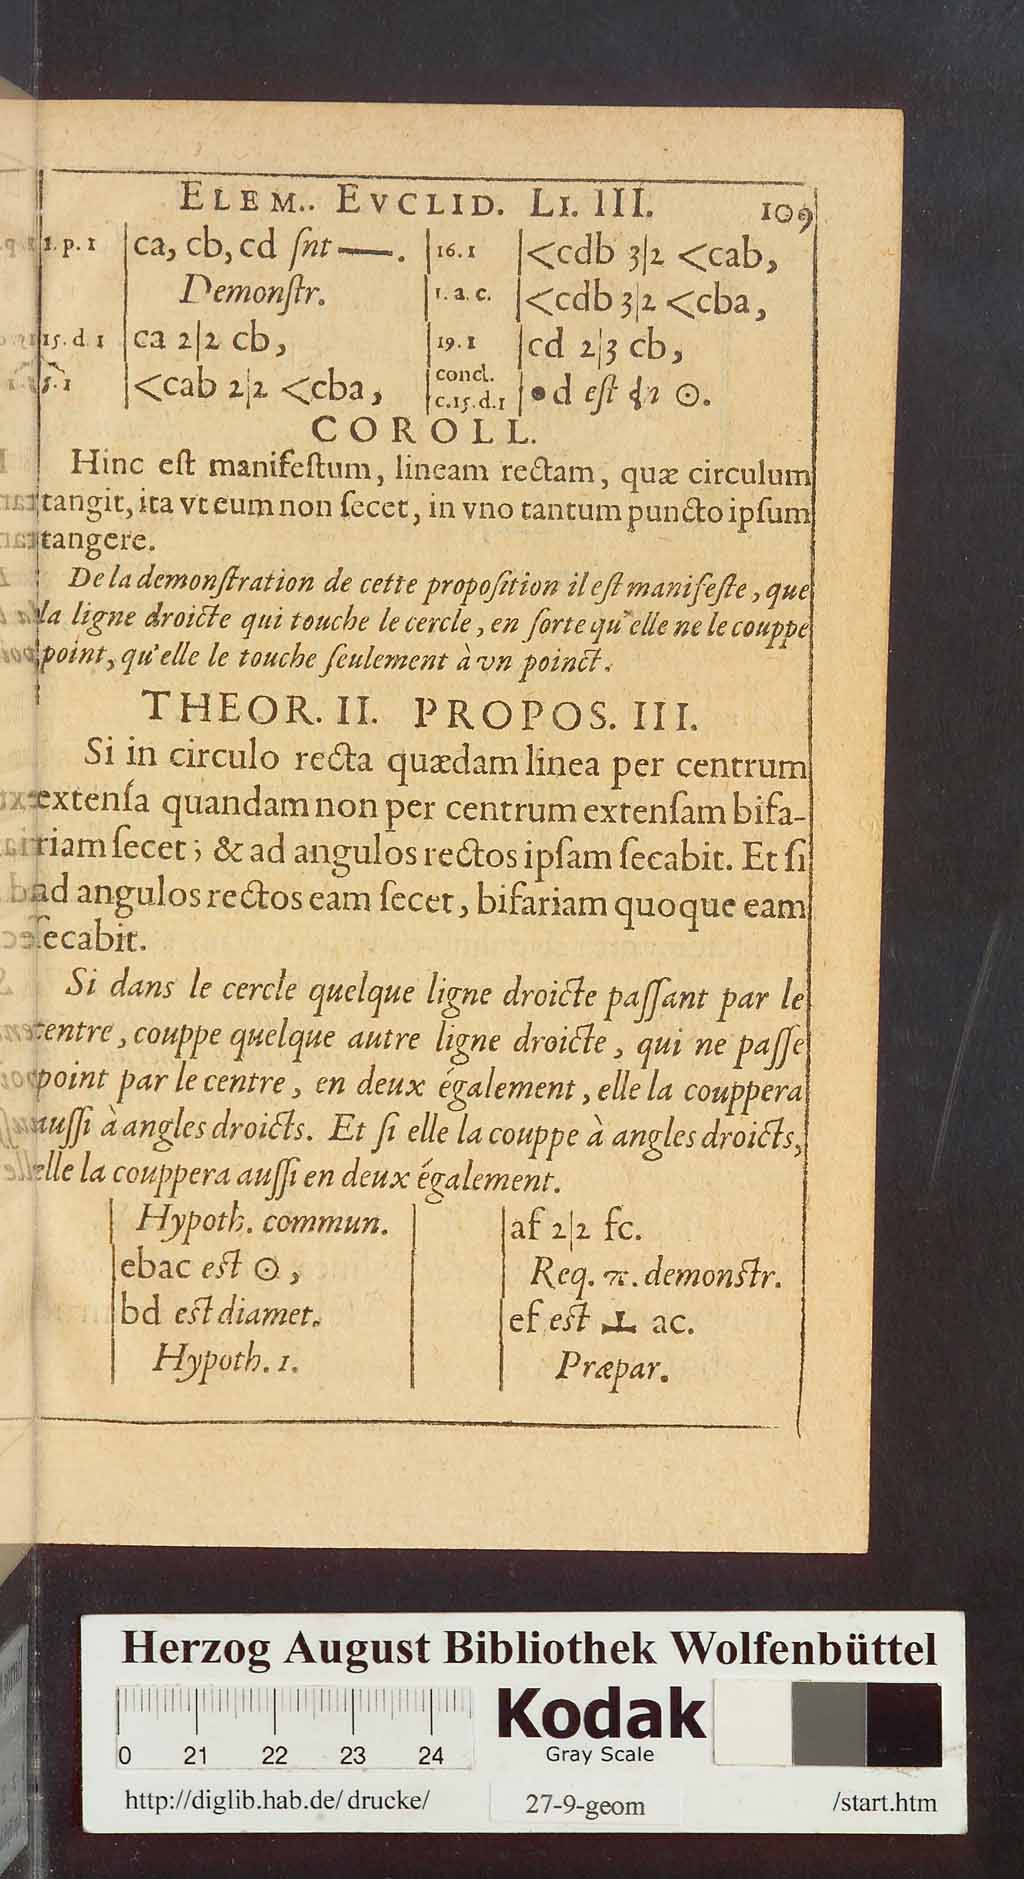 ELEM.. EVCLID. LI. III. 109
1. p. 1 | ca, cb, cd ſnt —.
Demonſtr.
15. d. 1 | ca 2|2 cb,
5. 1 | <cab 2|2 <cba,
16. 1 | <cdb 3|2 <cab,
1. a. c. | <cdb 3|2 <cba,
19. 1 | cd 2|3 cb,
concl.
c. 15. d. 1 | •d eſt ☉.
COROLL.
Hinc eſt manifeſtum, lineam rectam, quæ circulum
tangit, ita vt eum non ſecet, in vno tantum puncto ipſum
tangere.
De la demonſtration de cette propoſition il eſt manifeſte, que
la ligne droicte qui touche le cercle, en ſorte qu'elle ne le couppe
point, qu'elle le touche ſeulement à vn poinct.
THEOR. II. PROPOS. III.
Si in circulo recta quædam linea per centrum
extenſa quandam non per centrum extenſam bifa-
riam ſecet; & ad angulos rectos ipſam ſecabit. Et ſi
ad angulos rectos eam ſecet, bifariam quoque eam
ſecabit.
Si dans le cercle quelque ligne droicte paſſant par le
centre, couppe quelque autre ligne droicte, qui ne paſſe
point par le centre, en deux également, elle la couppera
auſſi à angles droicts. Et ſi elle la couppe à angles droicts,
elle la couppera auſſi en deux également.
Hypoth. commun.
ebac eſt ☉,
bd eſt diamet.
Hypoth. 1.
af 2|2 fc.
Req. π. demonſtr.
ef eſt ⊥ ac.
Præpar.
Herzog August Bibliothek Wolfenbüttel
0 21 22 23 24
Kodak
Gray Scale
http://diglib.hab.de/drucke/ 27-9-geom /start.htm